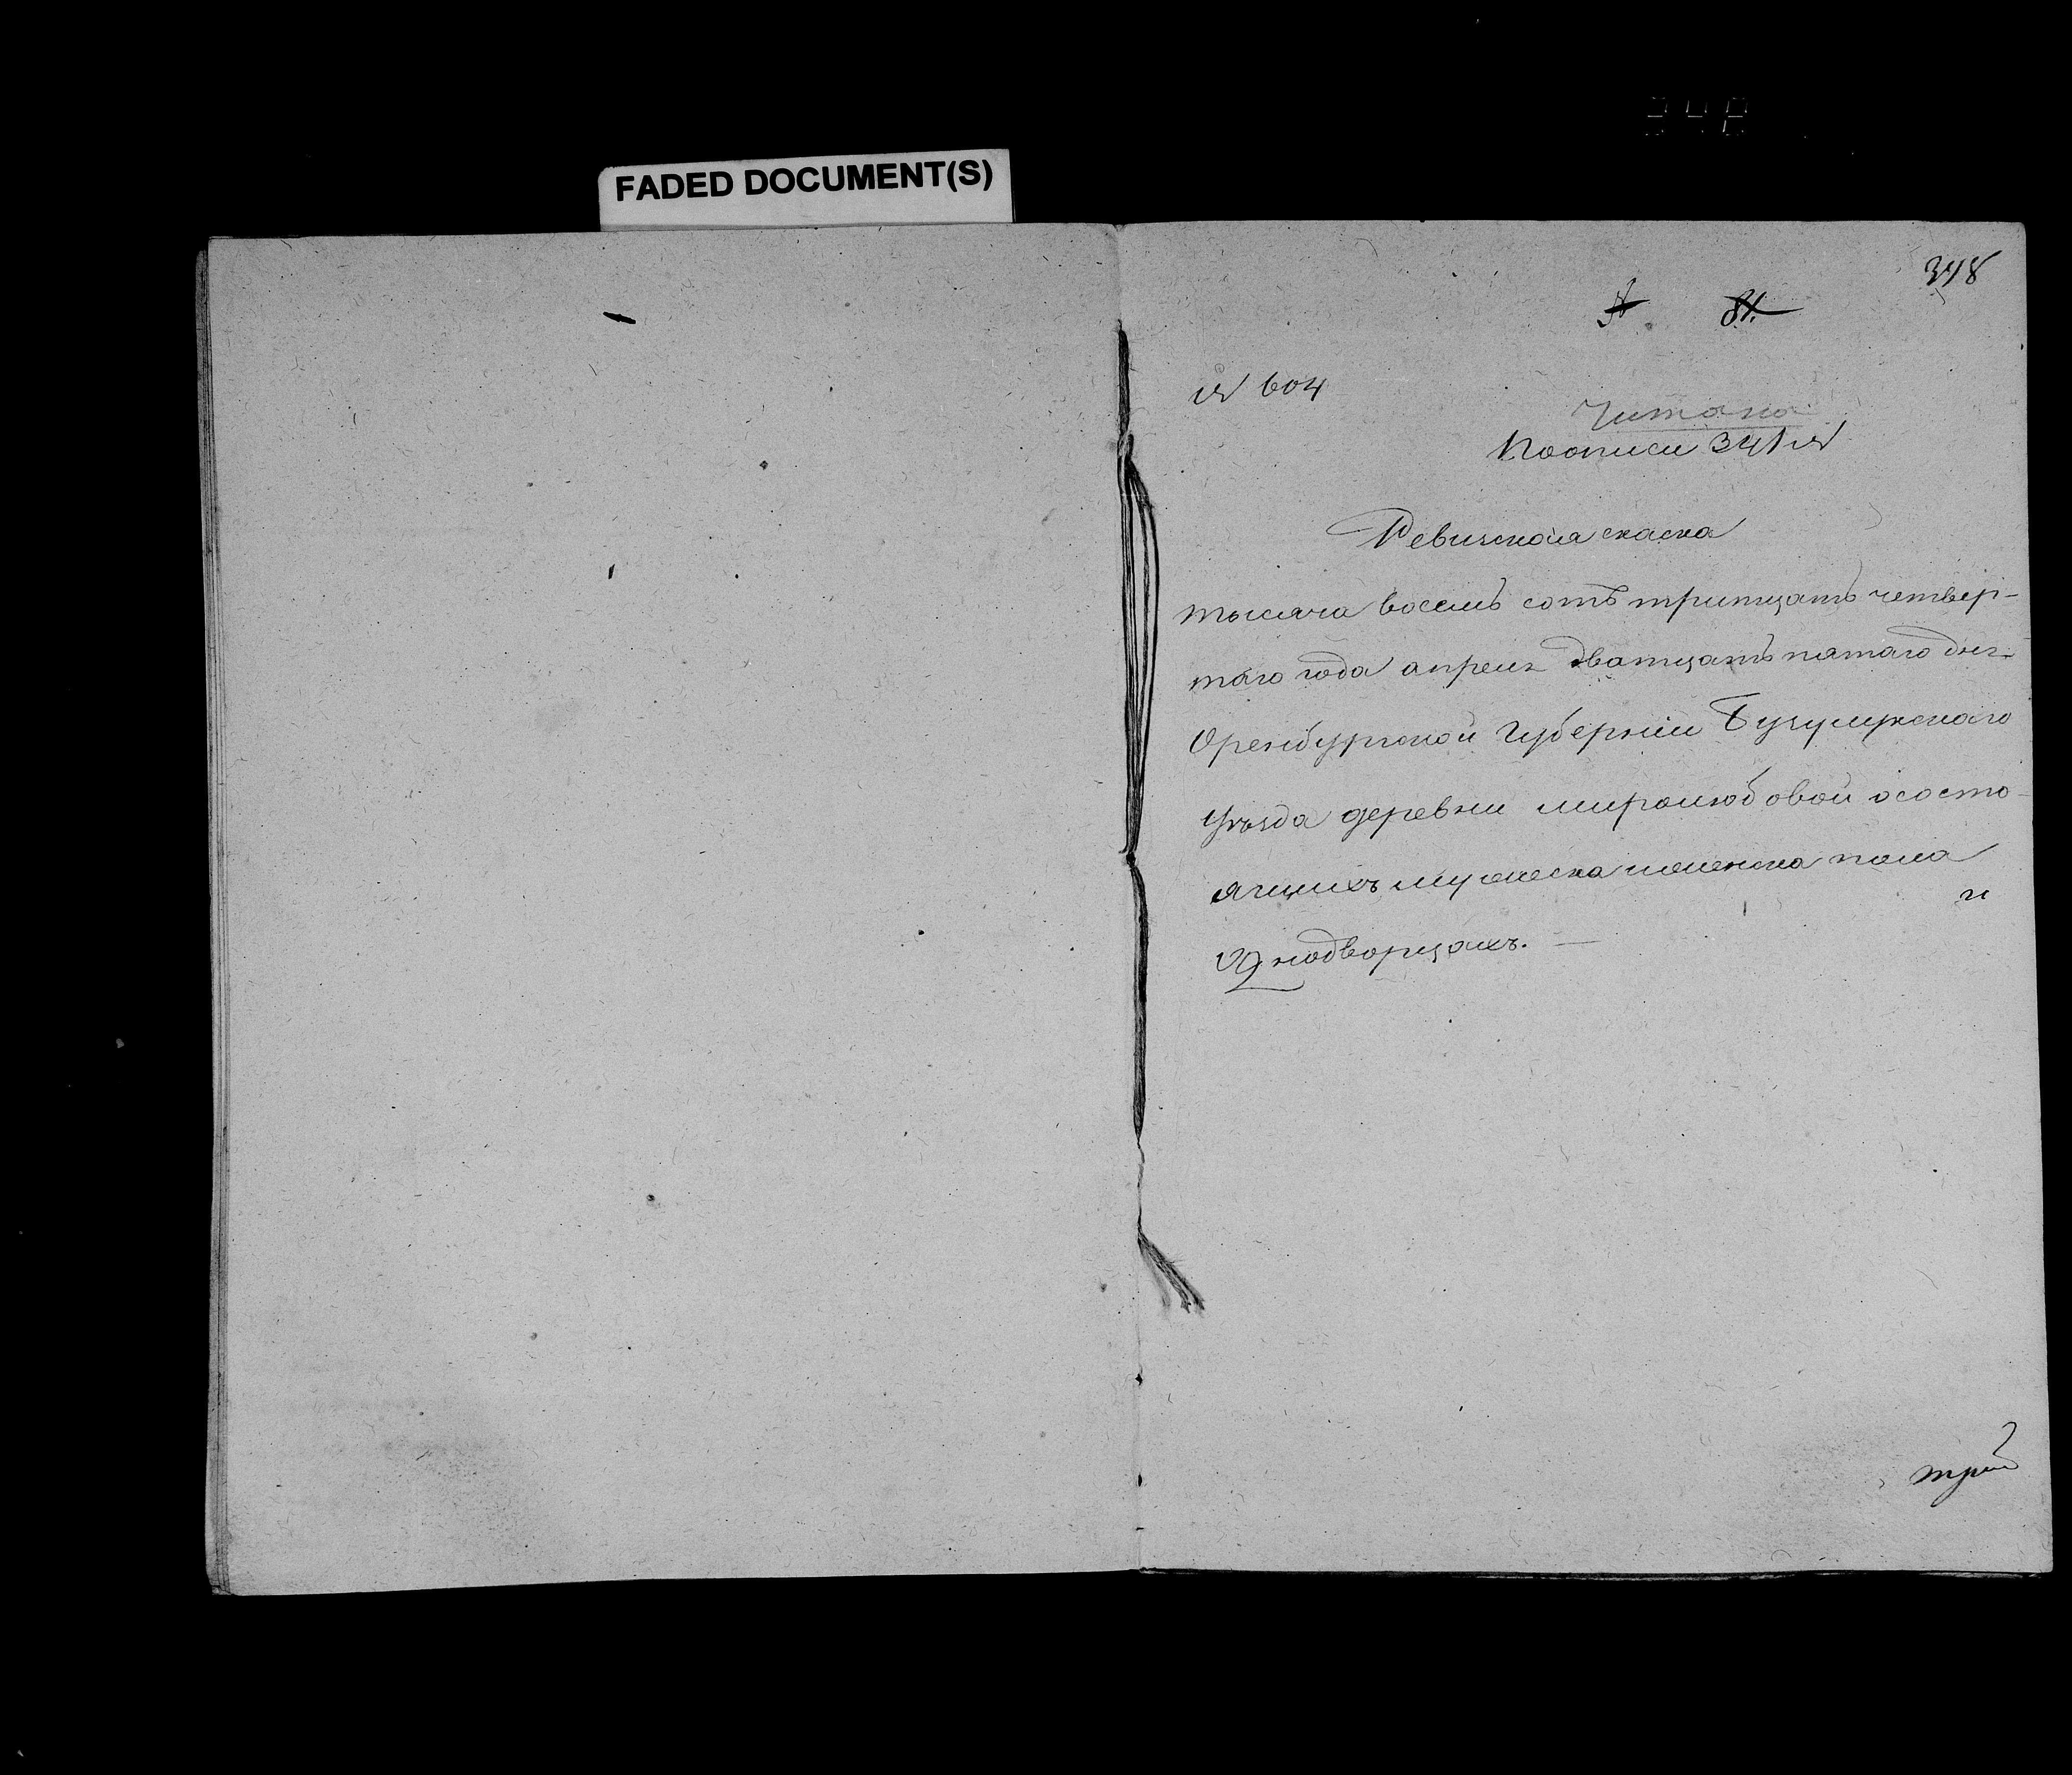 FADED DOCUMENT(S)
348
81.
№ 604
Читана
По описи 341 №
Ревизская скаска
тысяча восемь сотъ тритцать четвер-
таго года апреля дватцать пятаго дня
Оренбургской губернии Бузулукскаго
уѣзда деревни миролюбовой ососто-
ящихъ мужеска и женска пола
Однодворцахъ. —